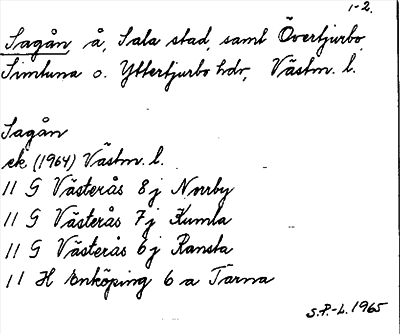 1-2.
Sagån å, Sala stad, samt Övertjurbo,
Simtuna o. Yttertjurbo hdr, Västm. l.
Sagån
ek (1964) Västm. l.
11 G Västerås 8 j Norrby
11 G Västerås 7 j Kumla
11 G Västerås 6 j Ransta
11 H Enköping 6 a Tärna
S.P.-L. 1965